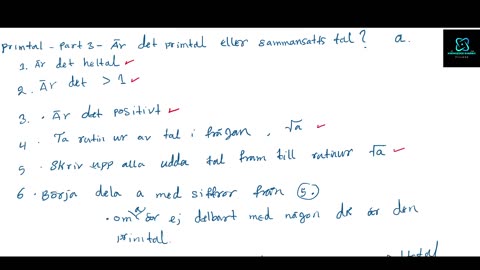 primtal - part 3 - Är det primtal eller sammansatts tal? a.
1. är det heltal ✓
2. är det > 1 ✓
3. • Är det positivt ✓
4 • Ta rutin ur av tal i frågan, √a ✓
5 • Skriv upp alla udda tal fram till rutinur √a ✓
6 • Börja dela a med siffror från 5.
• om a är ej delbart med någon då är den
primtal.